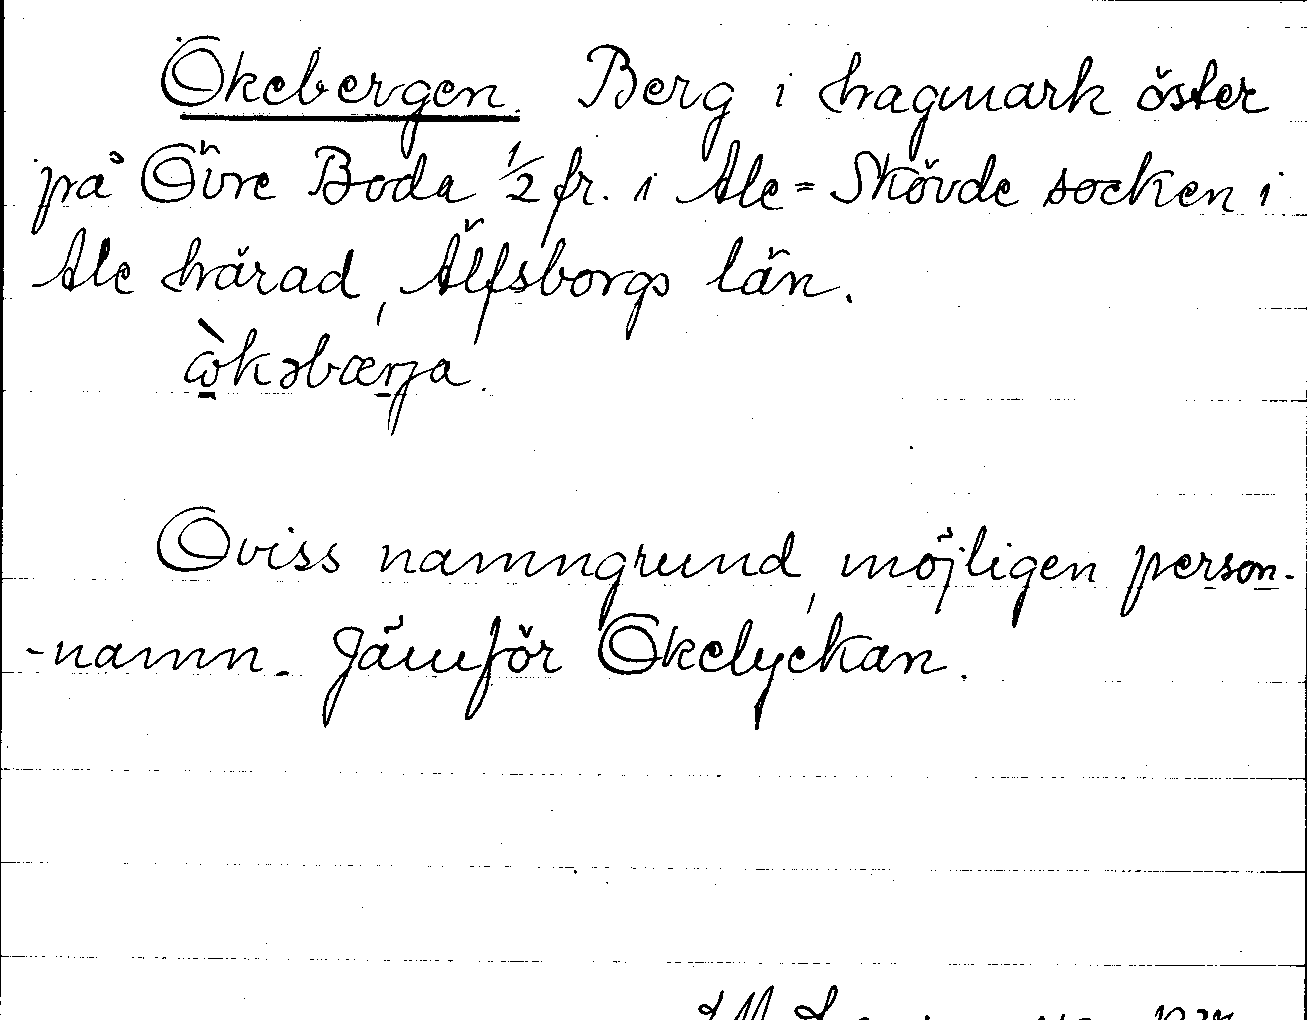 Ökebergen. Berg i hagmark öster
på Övre Boda 1/2 fr. i Ale=Skövde socken i
Ale härad, Älfsborgs län.
ὼkəbærja.
Oviss namngrund, möjligen person-
-namn. Jämför Okelyckan.